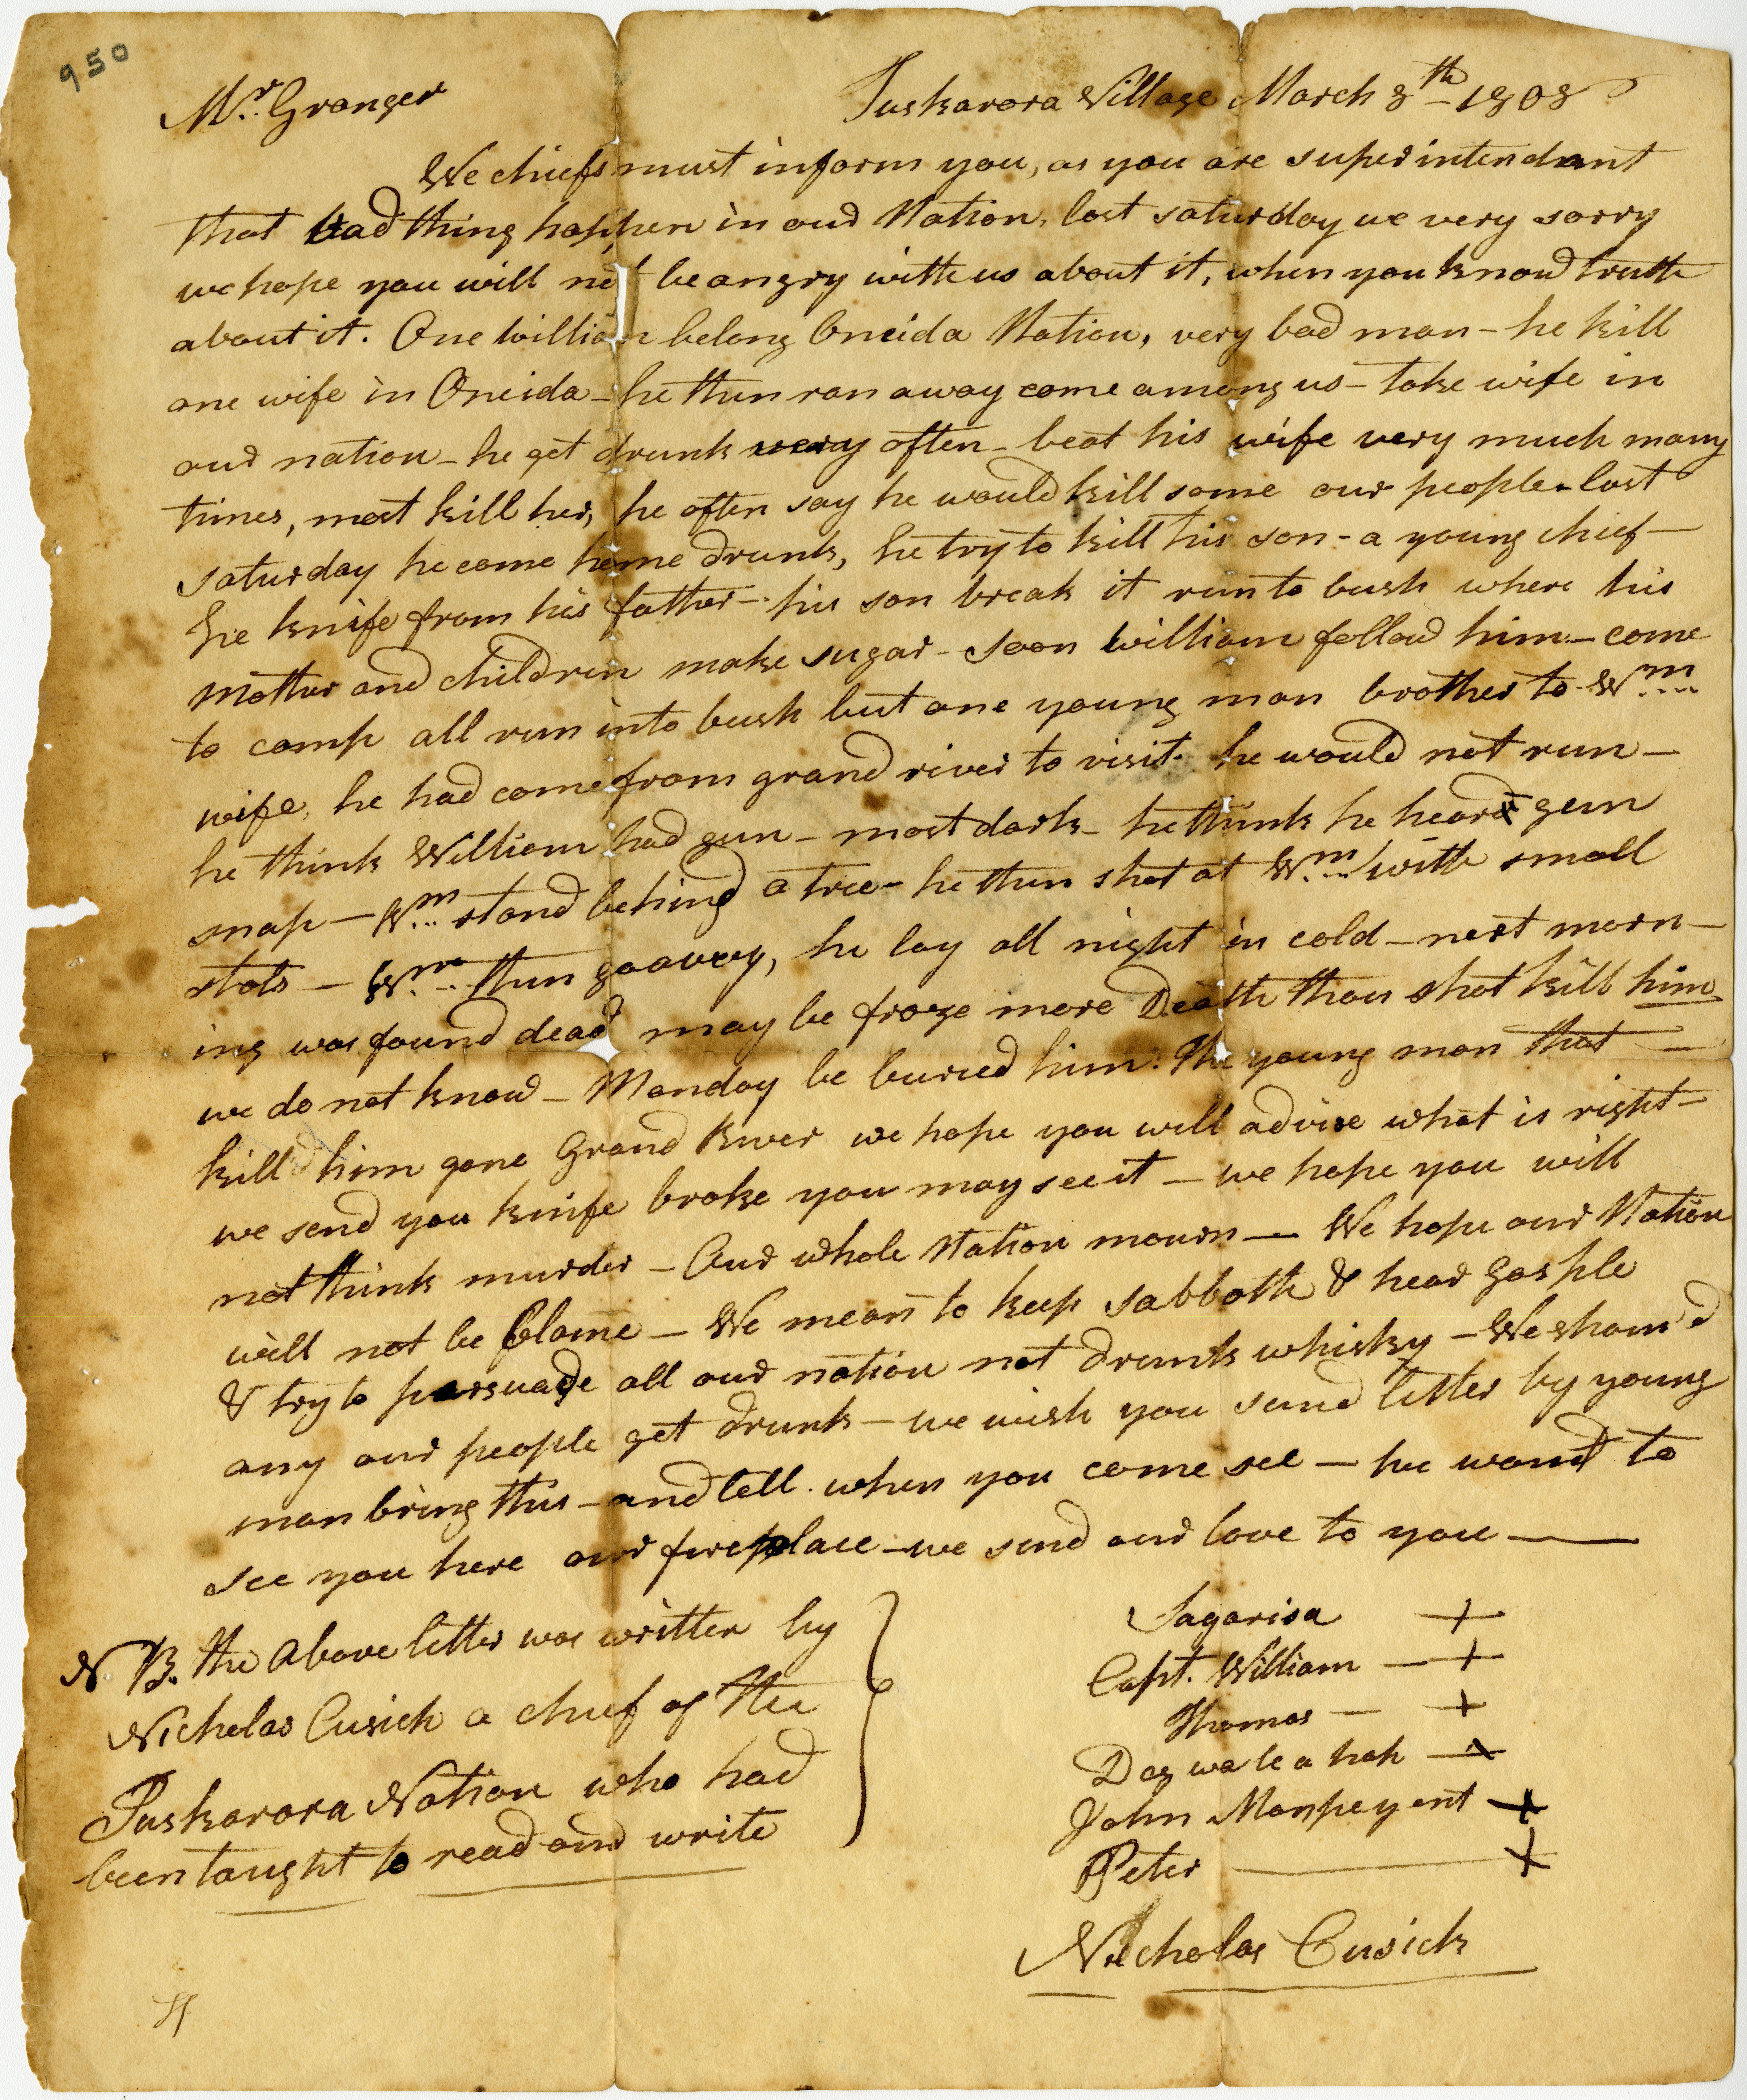 950
Mr. Granger
Tuskarora Village March 8th 1808
We chiefs must inform you, as you are superintendant
that bad thing happen in our Nation, last saturday we very sorry
we hope you will not be angry with us about it, when you know truth
about it. One William belong Oneida Nation, very bad man - he kill
one wife in Oneida - he then ran away come among us - take wife in
our nation - he get drunk very often - beat his wife very much many
times, most kill her, he often say he would kill some our people - last
saturday he come home drunk, he try to kill his son - a young chief -
he knife from his father - his son break it run to bush where his
mother and children make sugar - soon William follow him - come
to camp all run into bush but one young man brother to Wm
wife, he had come from grand river to visit he would not run -
he think William had gun - most dark - he think he heard gun
snap - Wm stand behind a tree - he then shot at Wm with small
shots - Wm then go away, he lay all night in cold - next morn-
ing was found dead may be froze more Death than shot kill him
we do not know - Monday be buried him. The young man that -
kill him gone Grand River we hope you will advise what is right -
we send you knife broke you may see it - we hope you will
not think murder - Our whole Nation mourn - We hope our Nation
will not be blame - We mean to keep sabbath & hear gosple
& try to persuade all our nation not drunk whisky - We sham'd
any our people get drunk - we wish you send letter by young
man bring this - and tell when you come see - we want to
see you here our fireplace - we send our love to you -
N B. the above letter was written by
Nicholas Cusick a chief of the
Tuskarora Nation who had
been taught to read and write
Sagarisa +
Capt. William - +
Thomas - +
Dag wa le a hah - +
John Monpeyent +
Peter - +
Nicholas Cusick